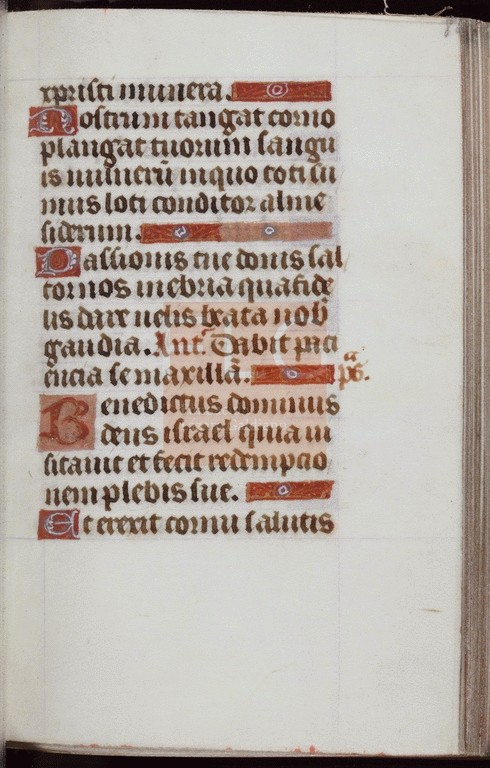 xpristi munera.
Nostrum tangat como
plangat tuorum sangu
is munerū in quo coti su
mus loti conditor alme
siderum.
Passionis tue donis sal
tor nos inebria qua fide
lis dare uelis beata nob̄
gaudia. Ant. Dabit pati
encia se maxillā. ps.
Benedictus dominus
deus israel quia ui
sitauit et fecit redempcio
nem plebis sue.
Et erexit cornu salutis